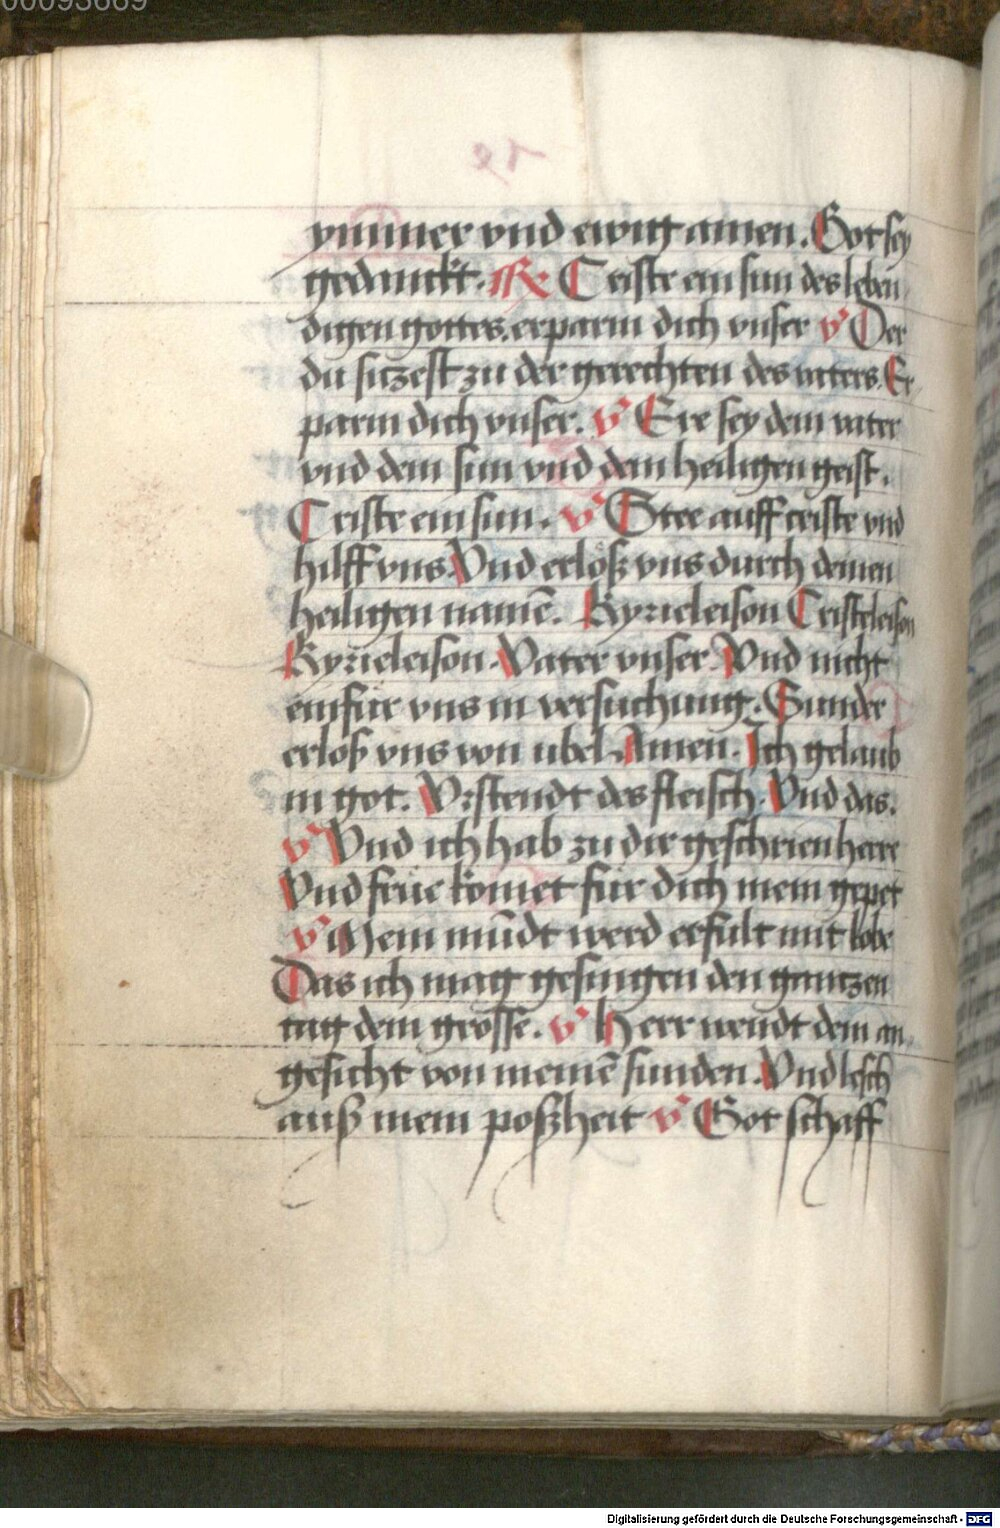 00093669
ymmer vnd ewig amen. Got sey
gedanckt. R Criste ein sun des leben
digen gottes. erparm dich vnser v Der
du sitzest zu der gerechten des vaters. Er
parm dich vnser. v Ere sey dem vater
vnd dem sun vnd dem heiligen geist.
Criste ein sun. v Stee auff criste vnd
hilff vns. Vnd erlöß vns durch deinen
heiligen namē. Kyrieleison Cristeleison
Kyrieleison. Vater vnser. Vnd nicht
einfür vns in versuchung. Sunder
erloß vns von ubel. Amen. Ich gelaub
in got. Vrstendt des fleisch. Vnd das.
v Vnd ich hab zu dir geschrien herre
Vnd frue komet für dich mein gepet
v Mein mūdt werd erfult mit lobe
Das ich mag gesingen den gantzen
tag dein grosse. v Herr wendt dein an
gesicht von meinē sunden. Vnd lesch
auß mein poßheit v Got schaff
Digitalisierung gefördert durch die Deutsche Forschungsgemeinschaft - DFG